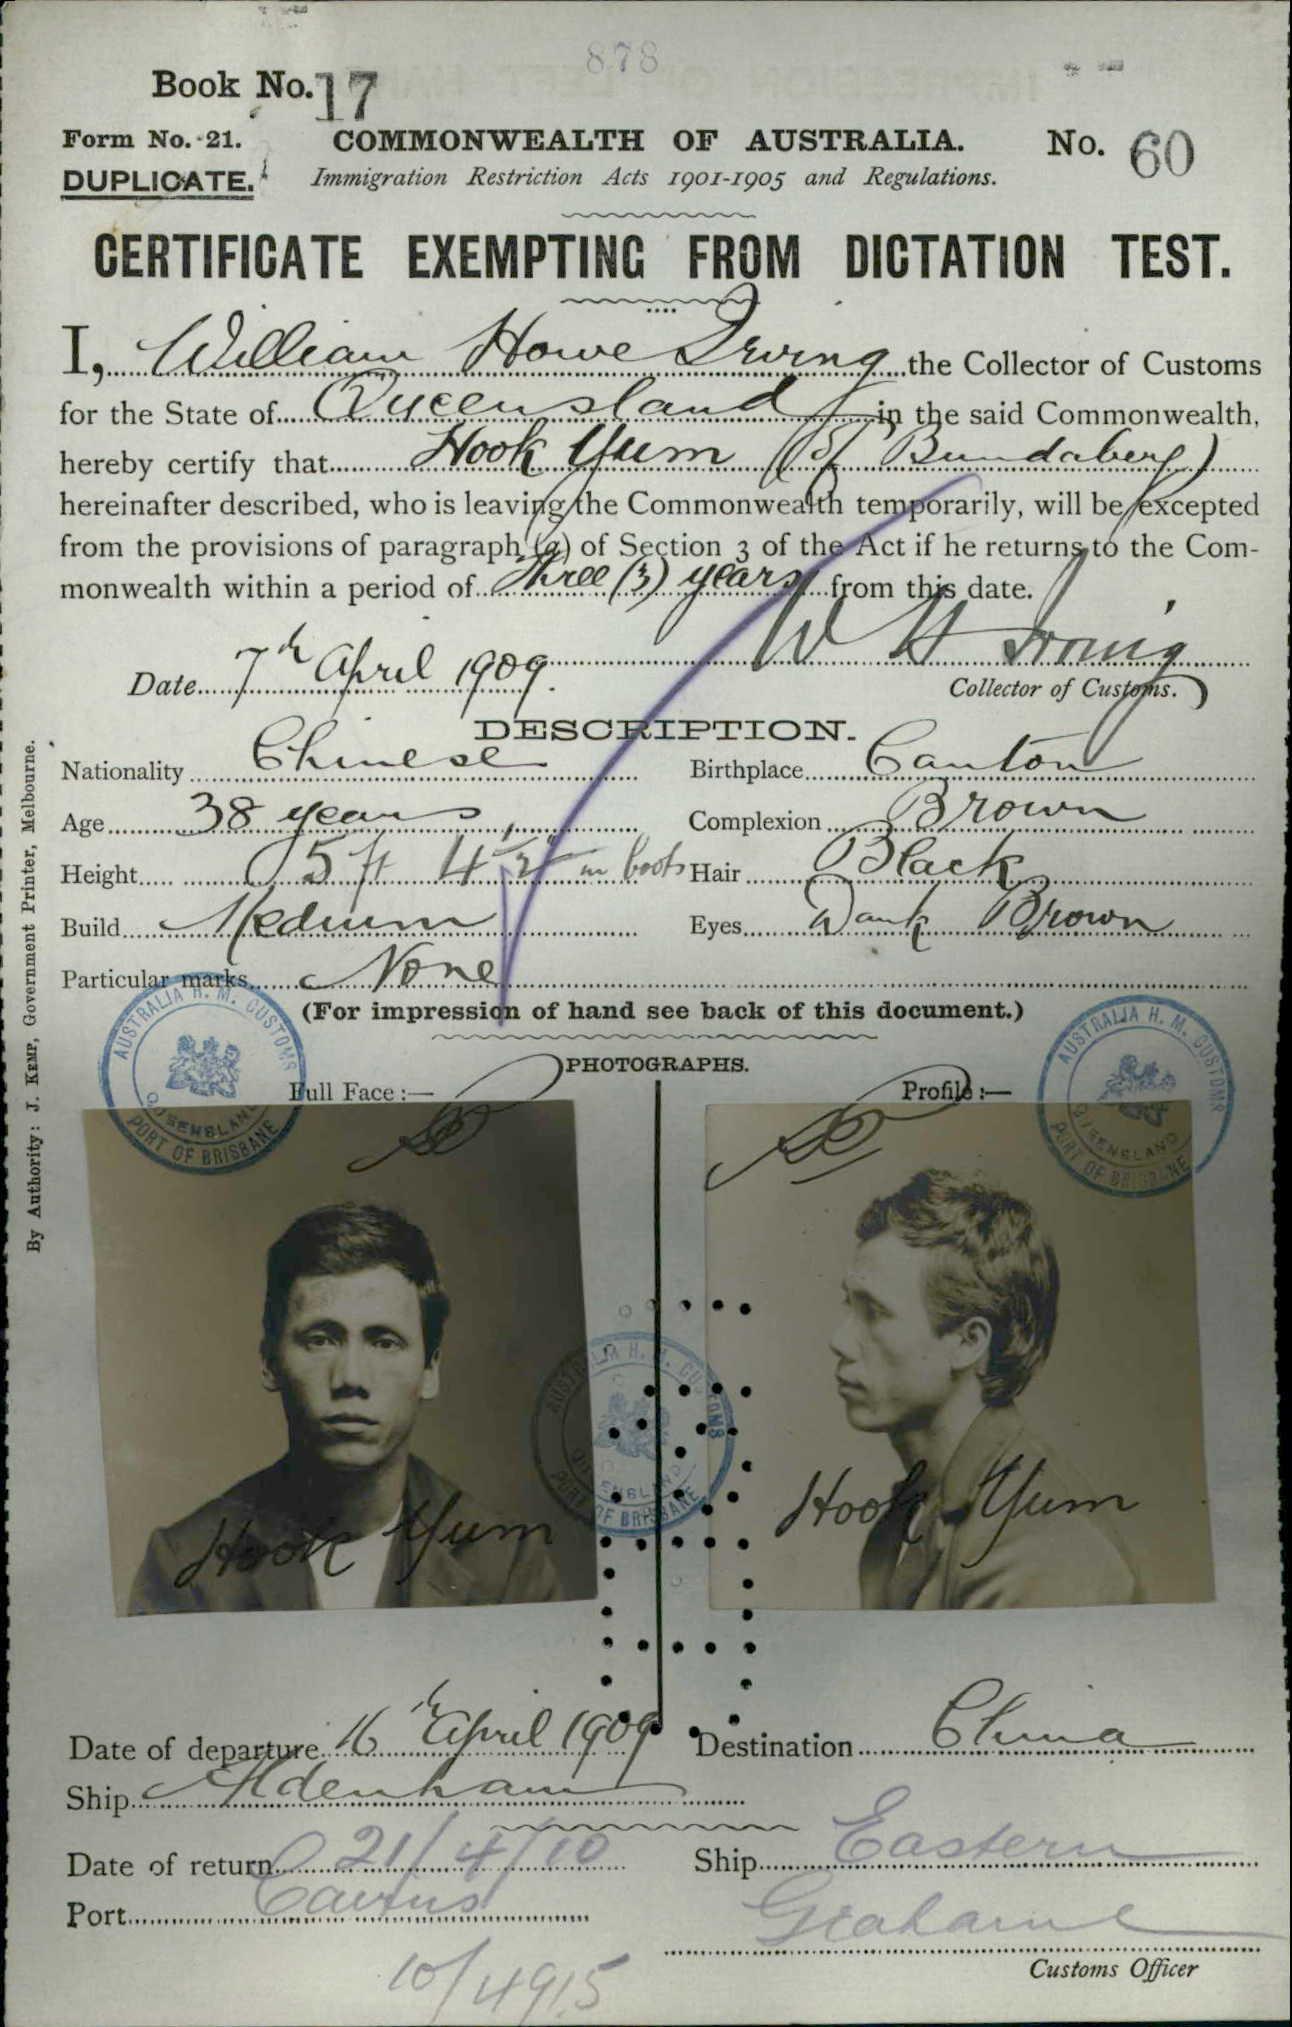 878
Book No. 17
Form No. 21. COMMONWEALTH OF AUSTRALIA. No. 60
DUPLICATE. Immigration Restriction Acts 1901-1905 and Regulations.
CERTIFICATE EXEMPTING FROM DICTATION TEST.
I, William Howe Irving the Collector of Customs
for the State of Queensland in the said Commonwealth,
hereby certify that Hook Yum (of Bundaberg)
hereinafter described, who is leaving the Commonwealth temporarily, will be excepted
from the provisions of paragraph (a) of Section 3 of the Act if he returns to the Com-
monwealth within a period of Three (3) years from this date.
W H Irving
Date 7th April 1909.
Collector of Customs.
DESCRIPTION.
Nationality Chinese Birthplace Canton
Age 38 years Complexion Brown
Height 5 ft 4 1/2" in boots Hair Black
Build Medium Eyes Dark Brown
Particular marks None
(For impression of hand see back of this document.)
PHOTOGRAPHS.
Full Face :— Profile :—
AUSTRALIA H. M. CUSTOMS
QUEENSLAND
PORT OF BRISBANE
AUSTRALIA H. M. CUSTOMS
QUEENSLAND
PORT OF BRISBANE
AUSTRALIA H. M. CUSTOMS
QUEENSLAND
PORT OF BRISBANE
Hook Yum Hook Yum
Date of departure 16th April 1909 Destination China
Ship Aldenham
Date of return 21/4/10 Ship Eastern
Port Cairns Grahame
Customs Officer
10/4915
By Authority: J. KEMP, Government Printer, Melbourne.